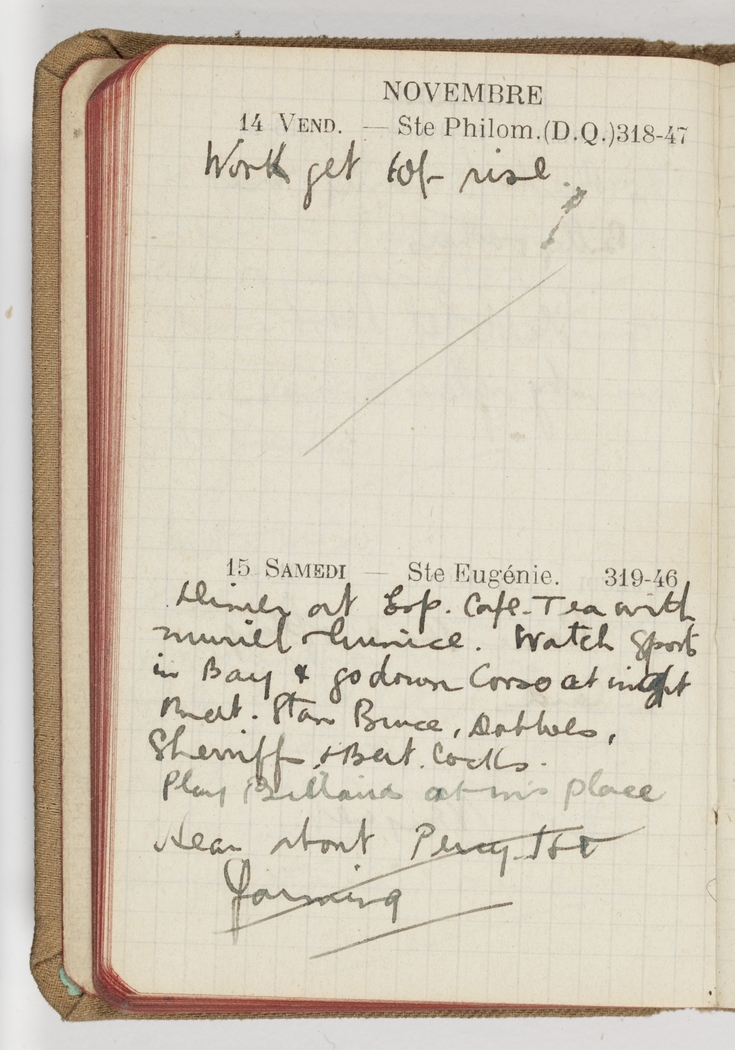 NOVEMBRE
14 VEND. — Ste Philom.(D.Q.)318-47
Work get 10/- rise.
15 SAMEDI — Ste Eugénie. 319-46
Dinner at Esp. Cafe - Tea with
Muriel & Eunice. Watch Sport
in Bay & go down Corso at night
Meet. Stan Bruce, Dobbels,
Sherriff, & Bert. Cocks.
Play Billiards at his place
Hear about Percy
Farming